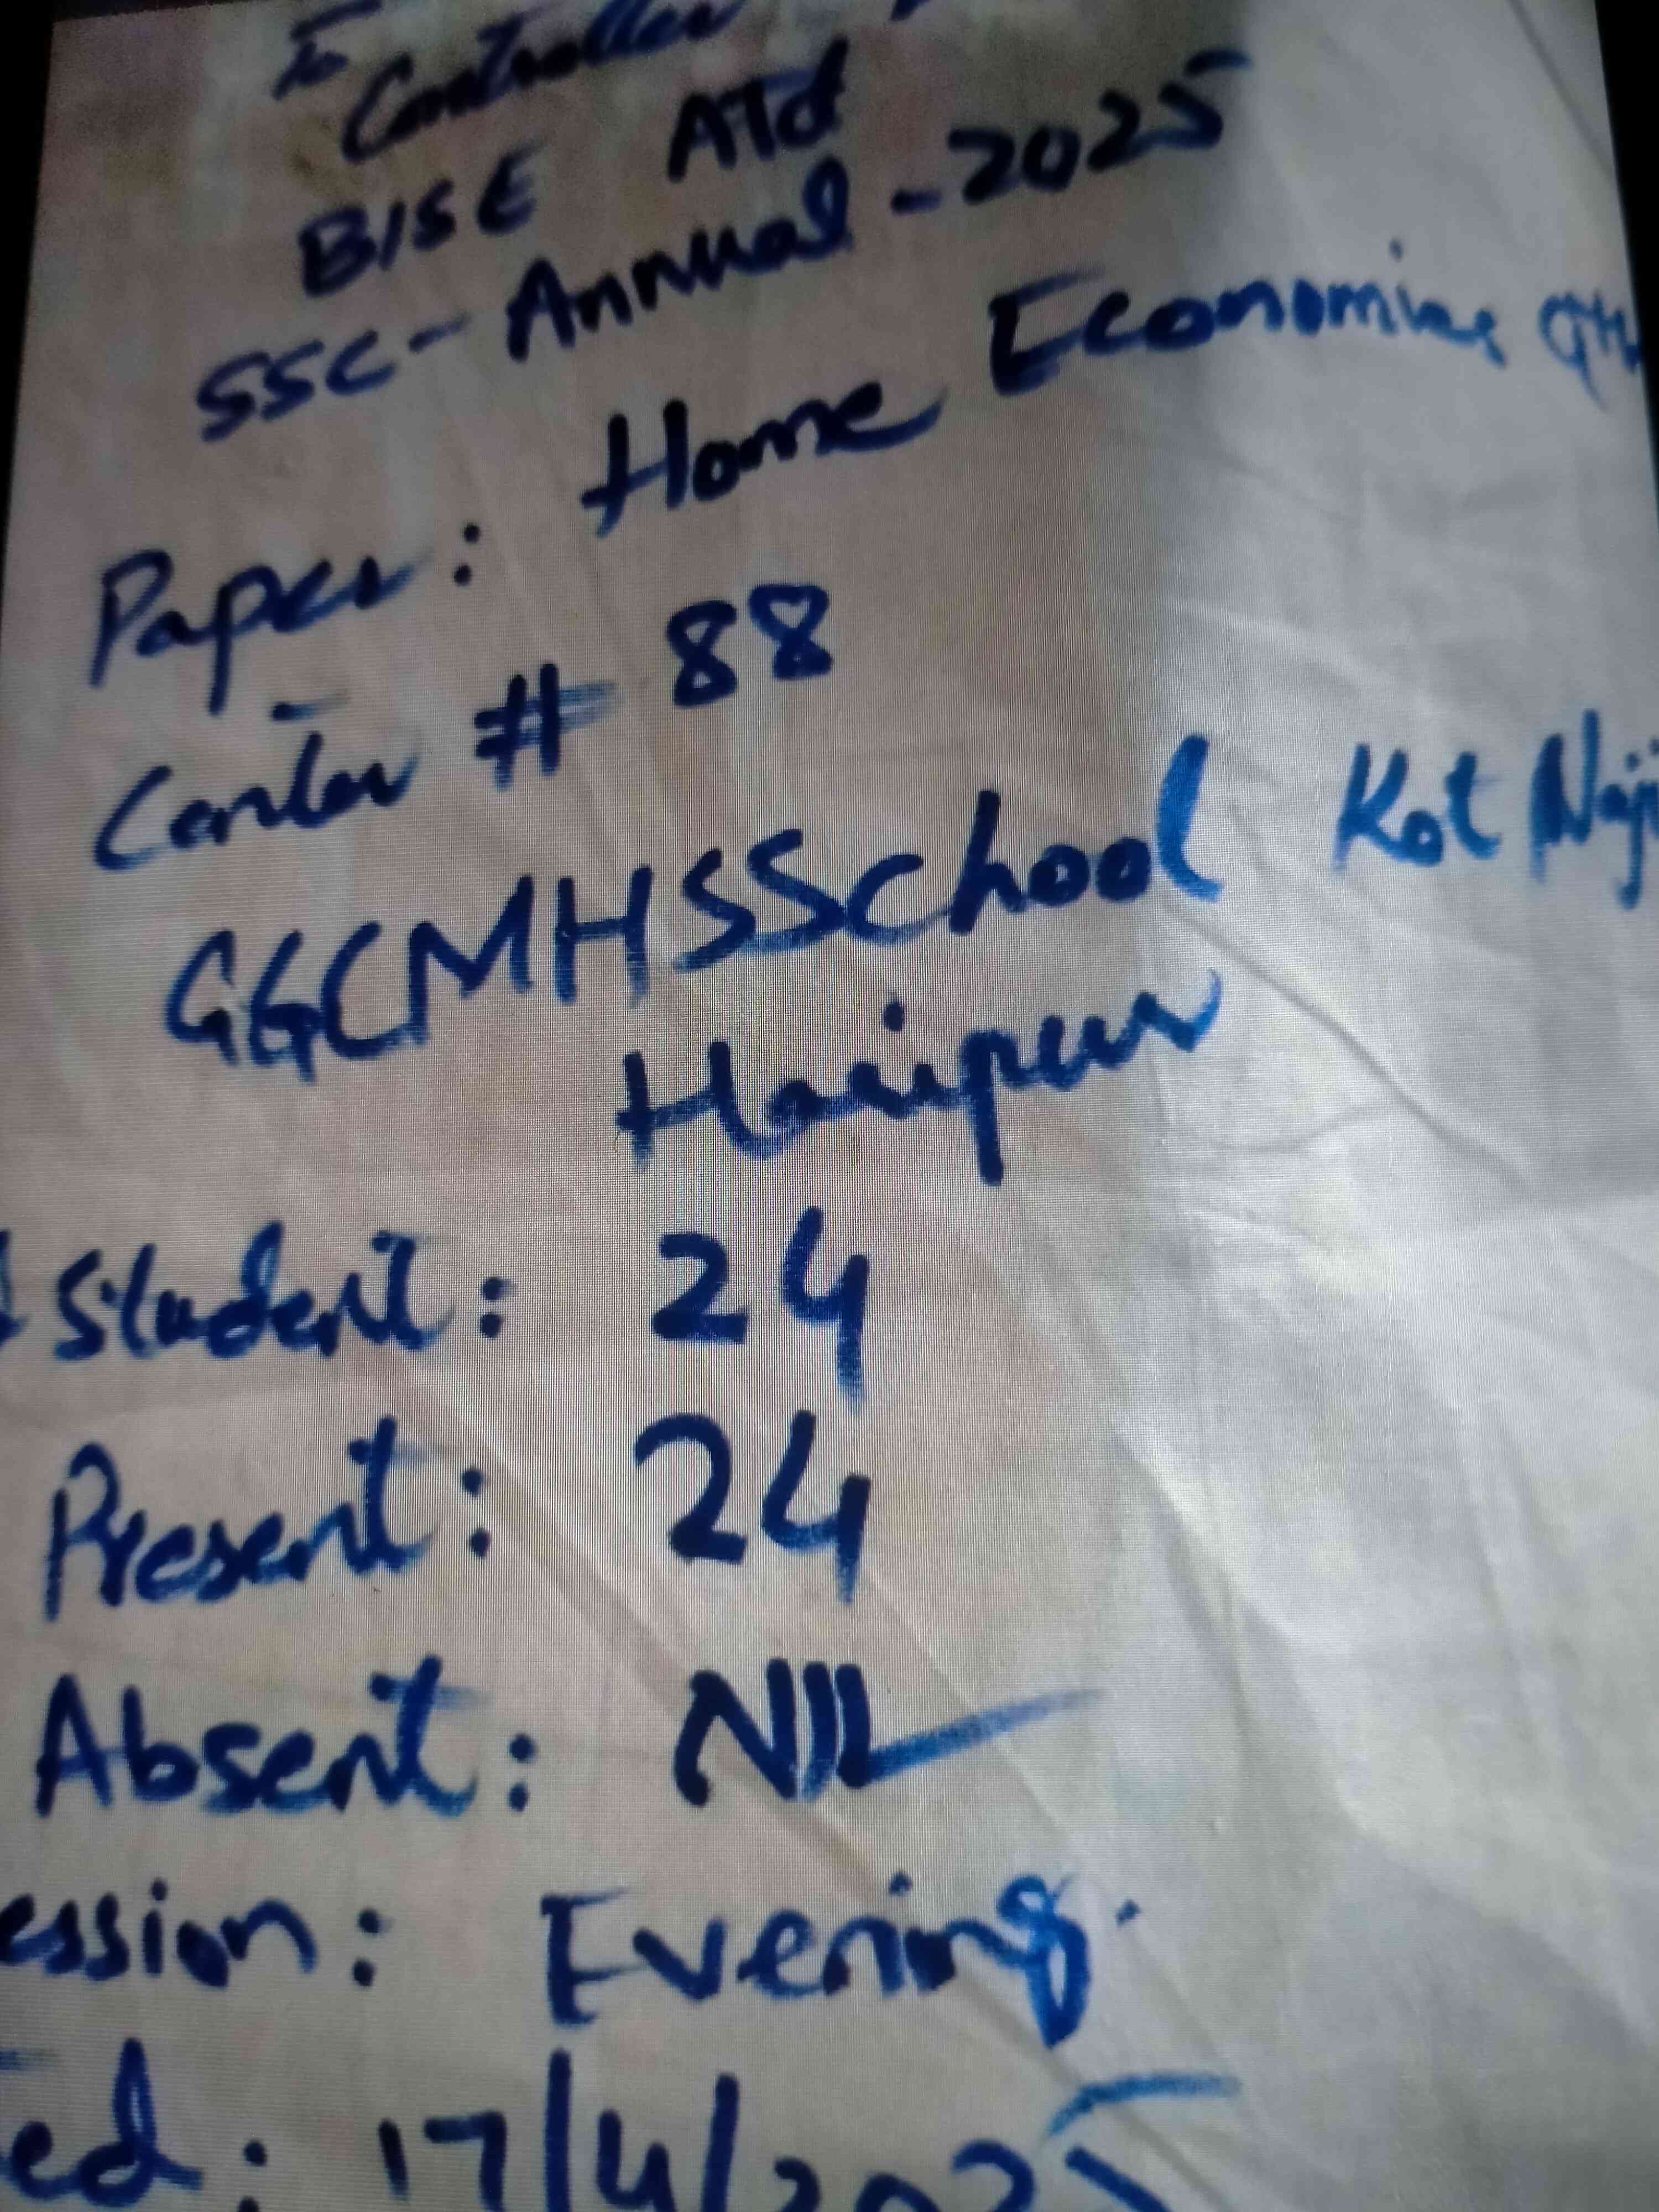 To
Controller
BISE ATd
SSC - Annual - 2025
Paper: Home Economics 9th
Center # 88
GGCMHSSchool Kot Naji
Haripur
Student: 24
Present: 24
Absent: NIL
ession: Evening.
ed: 17/4/2025